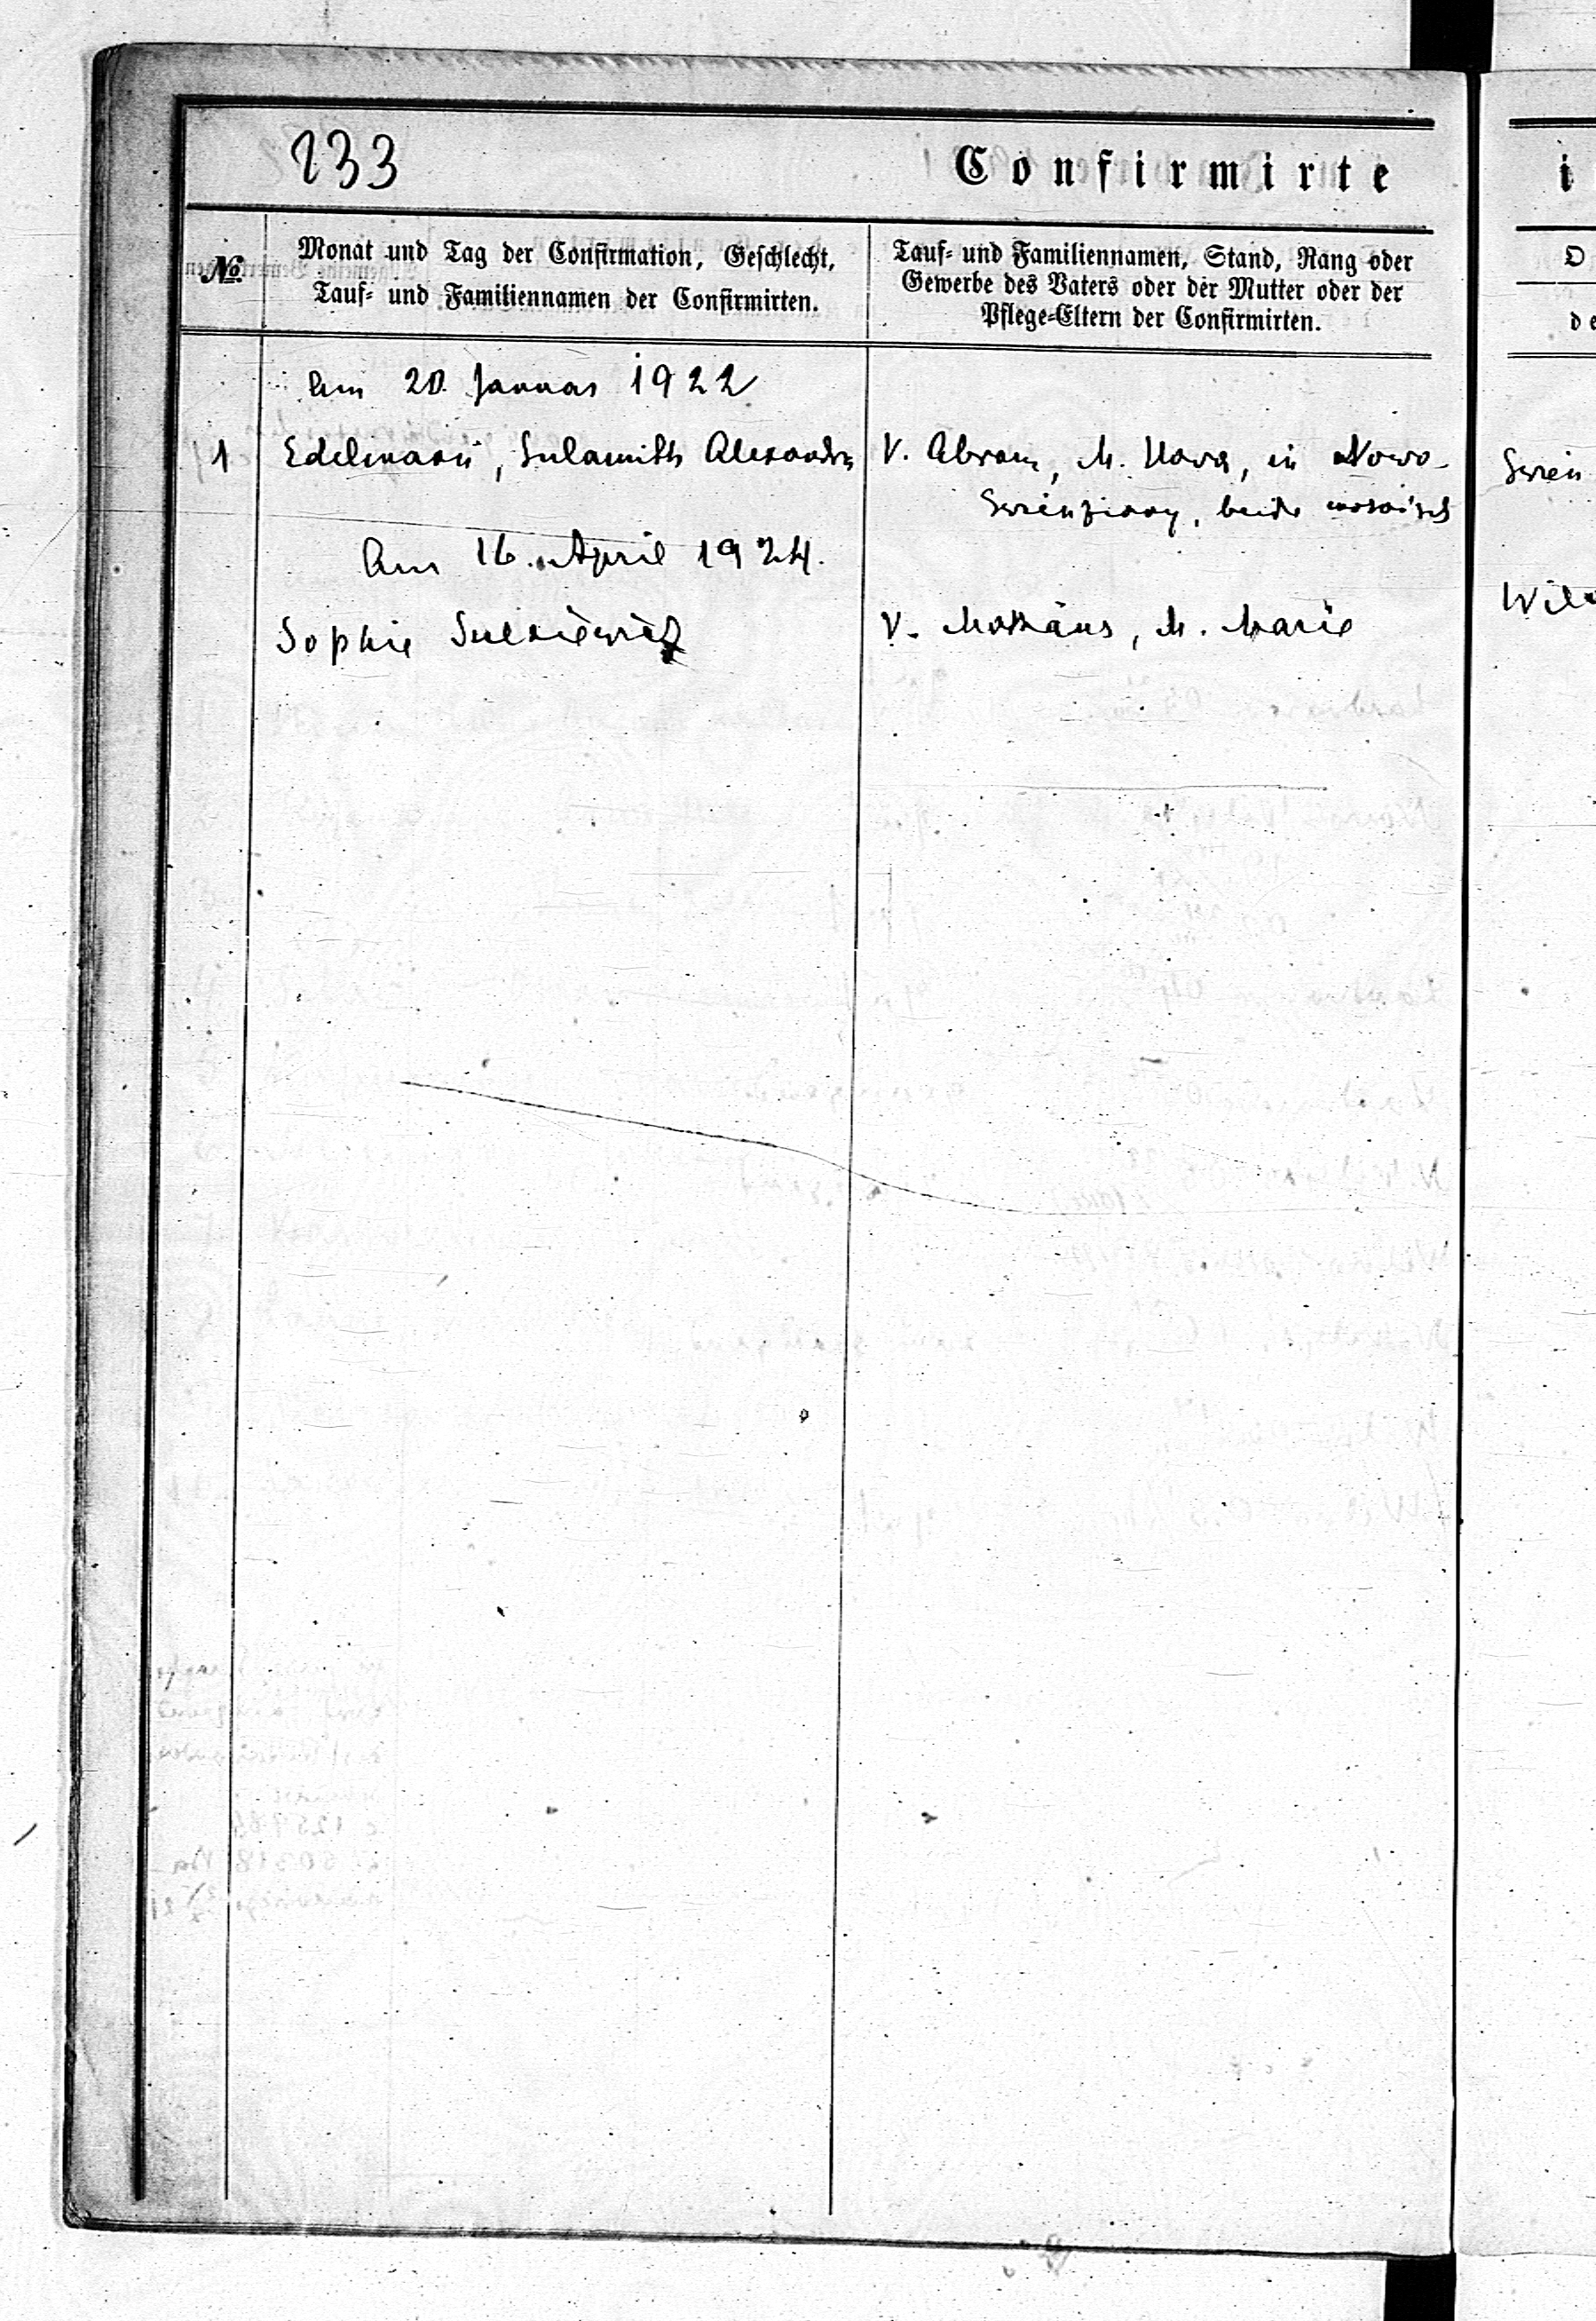 133
Confirmirte
№
Monat und Tag der Confirmation, Geschlecht,
Tauf- und Familiennamen der Confirmirten.
Tauf- und Familiennamen, Stand, Rang oder
Gewerbe des Vaters oder der Mutter oder der
Pflege-Eltern der Confirmirten.
Am 20. Januar 1922
1 Edelmann, Sulamith Alexandra
V. Abram, M. in Nowo-
beide mosaisch
Am 16. April 1924.
Sophie Sulkiewicz
V. Matthäus, M. Marie